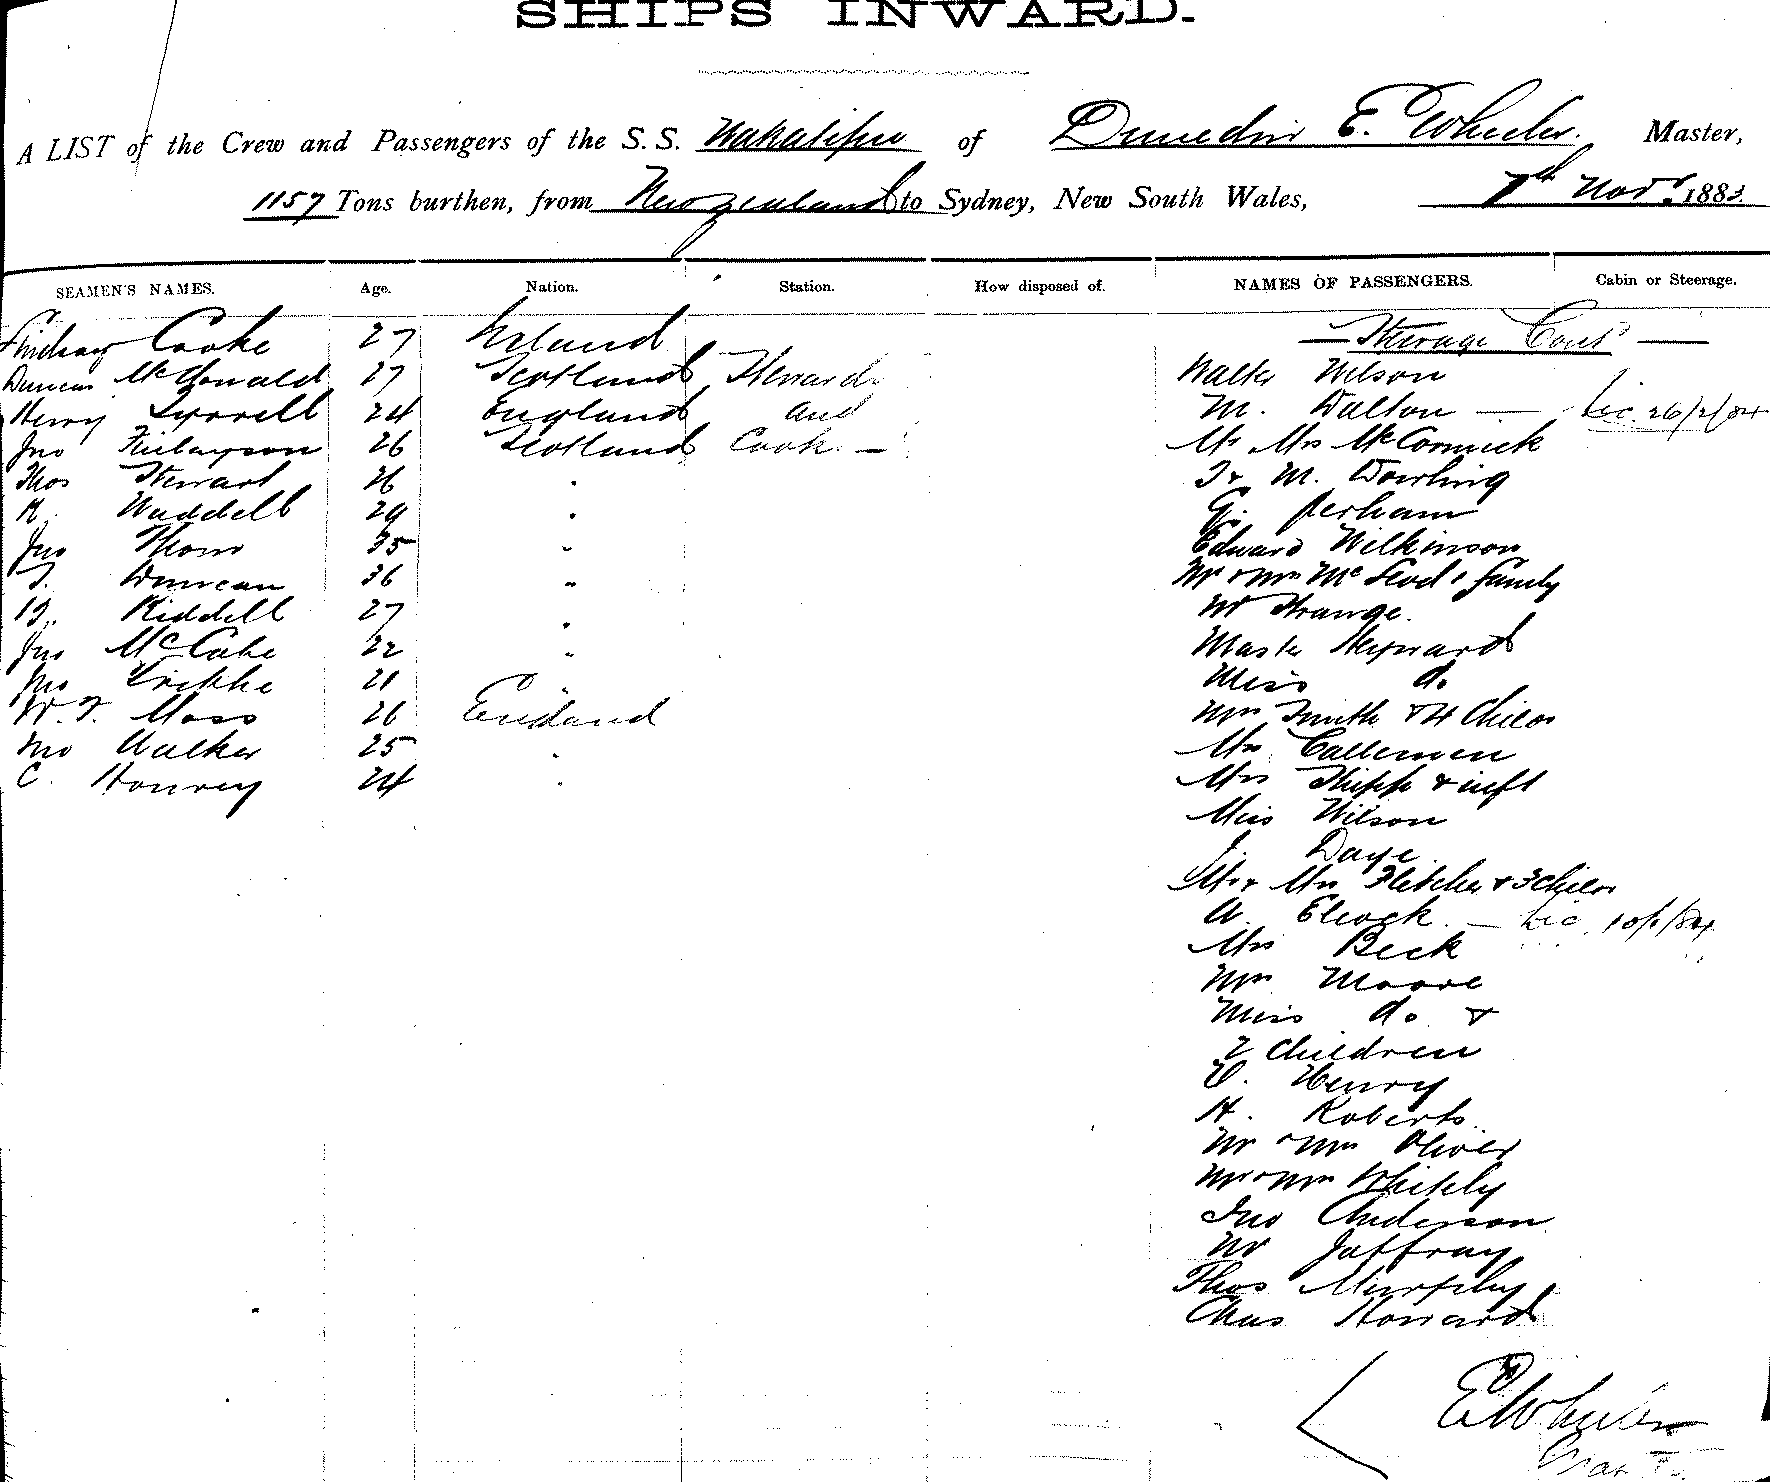 SHIPS INWARD.
A LIST of the Crew and Passengers of the S.S. Wakatipu of Dunedin E. Wheeler. Master,
1157 Tons burthen, from New Zealand to Sydney, New South Wales, 7th Novr. 1883
SEAMEN'S NAMES. Age. Nation. Station. How disposed of. NAMES OF PASSENGERS. Cabin or Steerage.
Lindsay Cooke 27 Ireland — Steerage Cont —
Duncan McDonald 27 Scotland Stewards Walter Wilson
Henry Tyrrell 24 England and M. Dalton — Lic. 26/2/84
Jno Finlayson 26 Scotland Cook — Mr Mrs McCormick
Thos Stewart 26 " J & M. Dowling
R. Waddell 29 " G. Perham
Jno Thom 35 " Edward Wilkinson
J. Duncan 36 " Mr & Mrs McLeod & family
Riddell 27 " Mr Strange.
Jno McCabe 22 " Master Heyward
Jno 21 " Miss do
W. F. Moss 26 England Mrs Smith & 4 Childn
Jno Walker 25 " Mrs
C. 24 " Mrs Shipp & inft
Miss Wilson
J. Daye
Mr & Mrs Fletcher & 3 Childn
A. Elcock — Lic. 10/1/84
Mrs Beck
Mrs Moore
Miss do &
2 Children
Henry
H. Roberts
Mr & Mrs Oliver
Mr & Mrs
Jno Anderson
Mr Jaffray
Thos Murphy
Chas Howard
E Wheeler